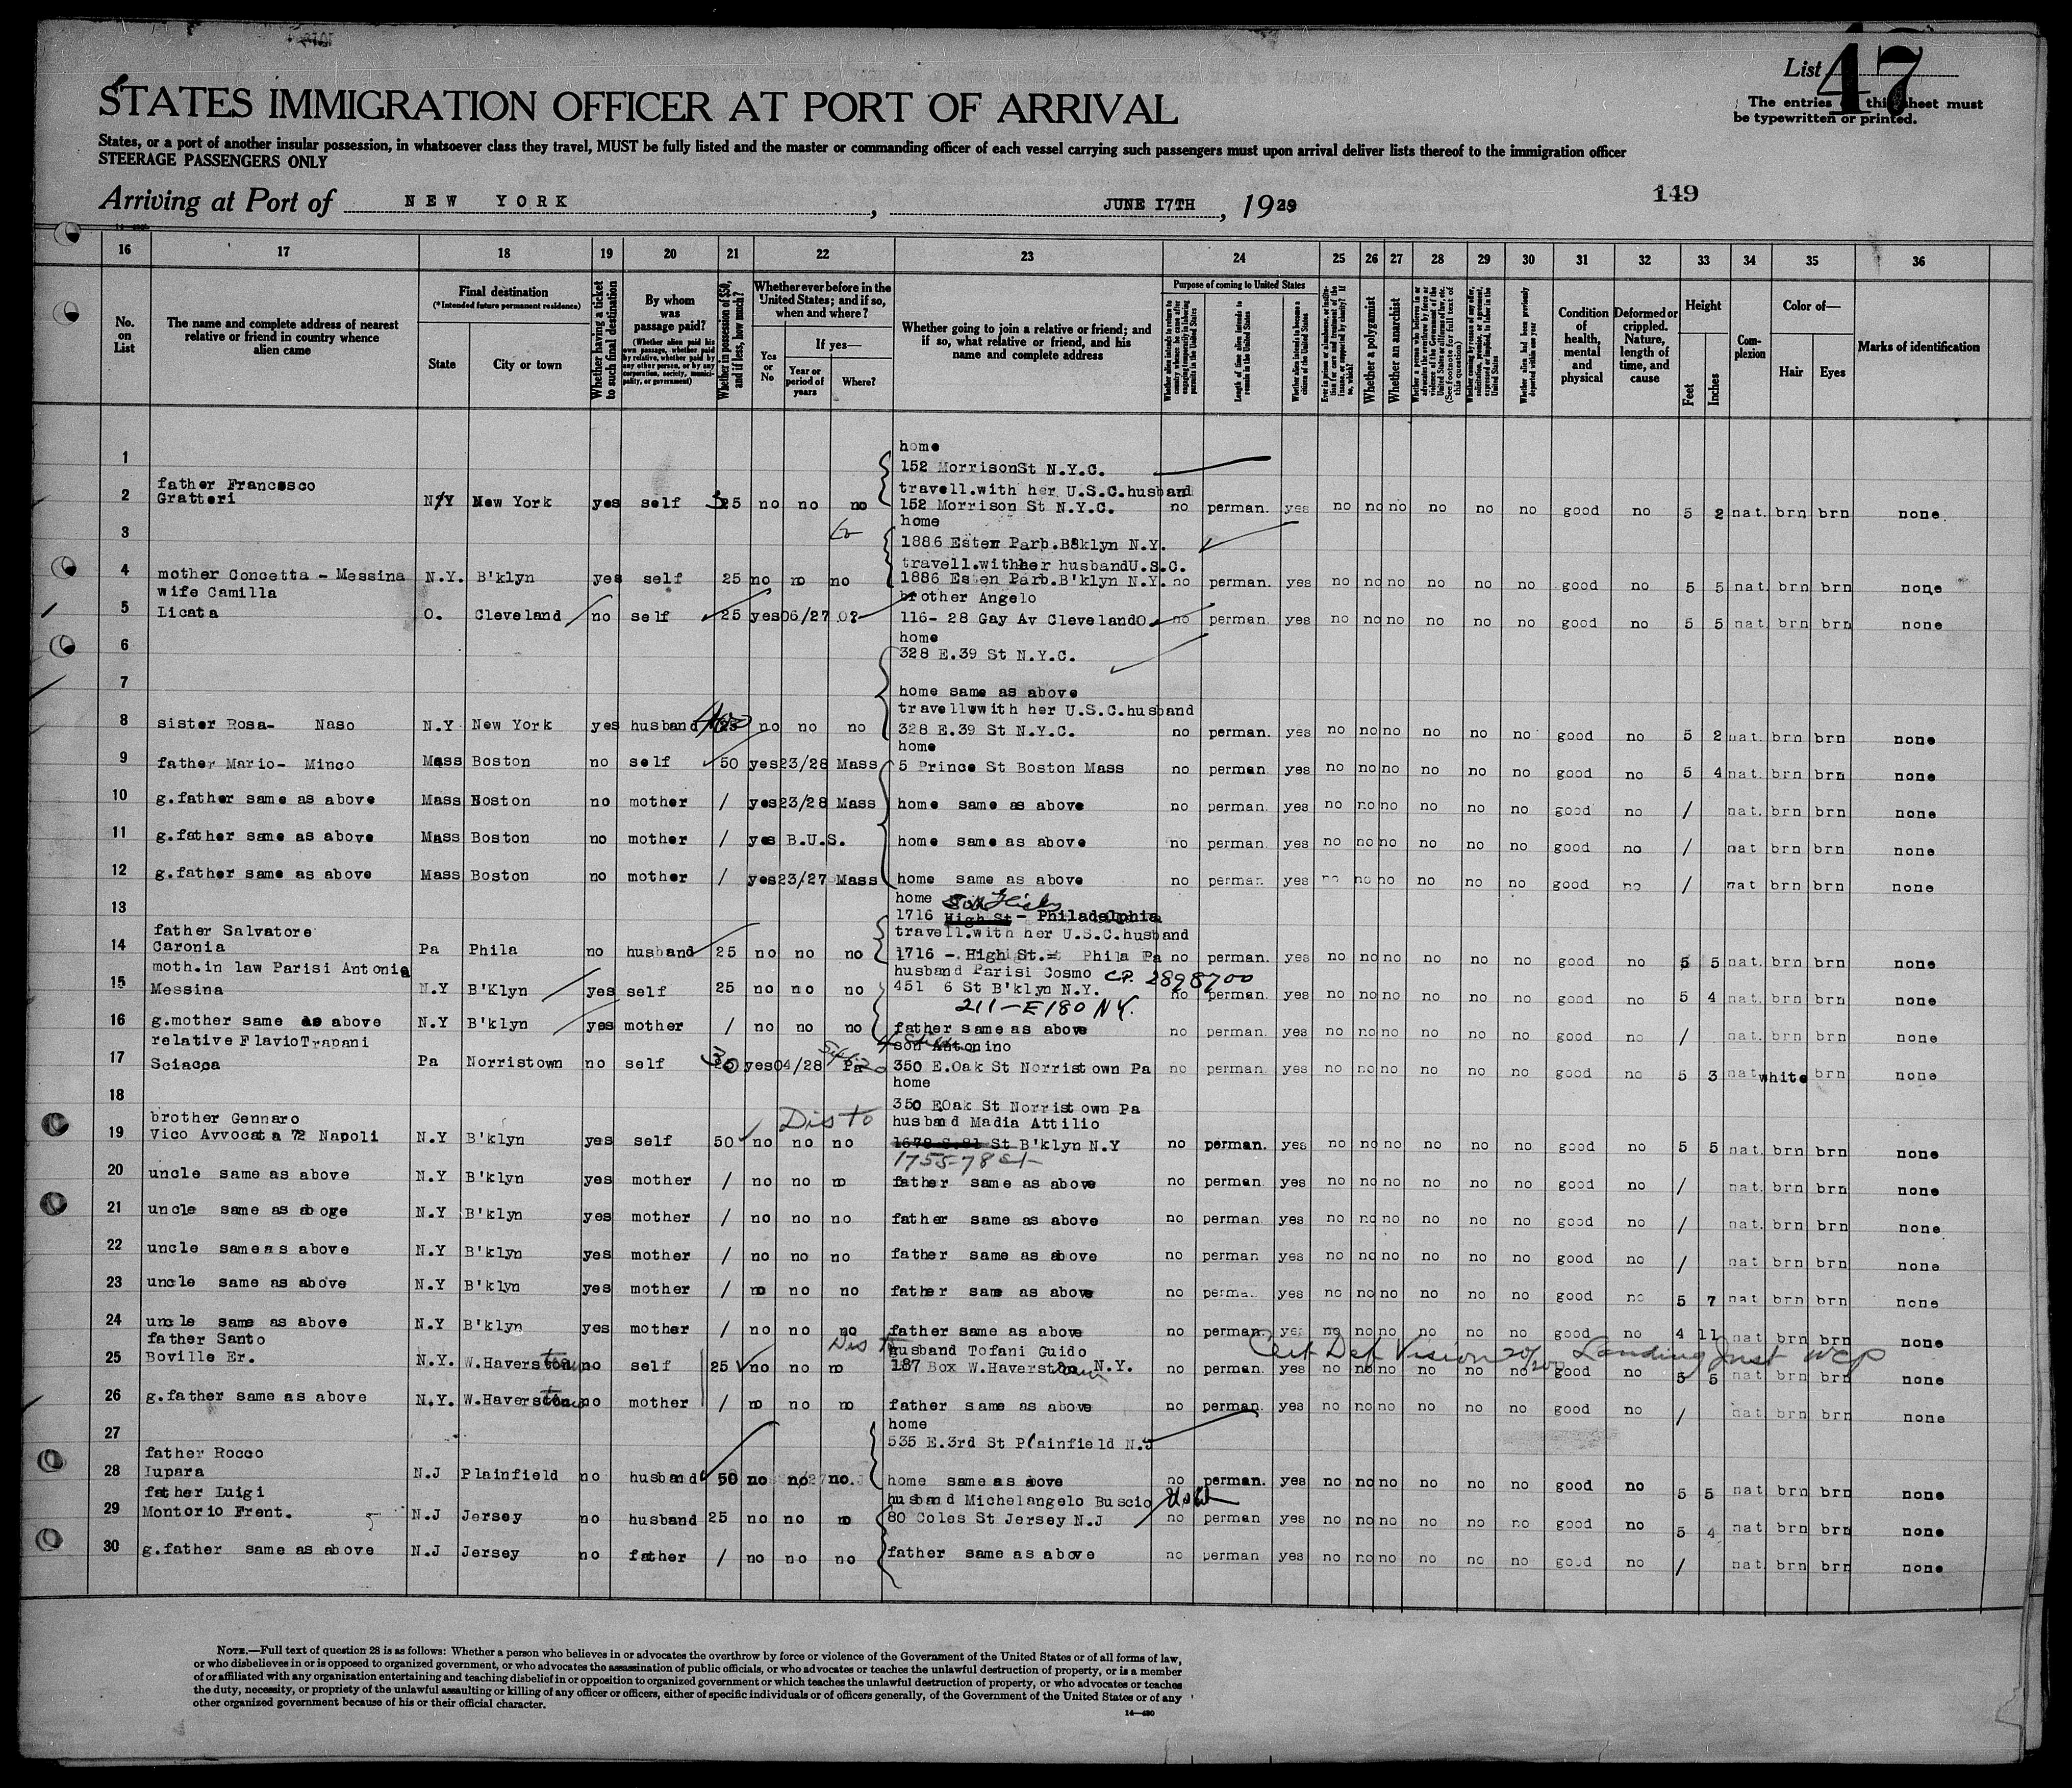 List 47
The entries this sheet must
be typewritten or printed.
STATES IMMIGRATION OFFICER AT PORT OF ARRIVAL
States, or a port of another insular possession, in whatsoever class they travel, MUST be fully listed and the master or commanding officer of each vessel carrying such passengers must upon arrival deliver lists thereof to the immigration officer
STEERAGE PASSENGERS ONLY
149
Arriving at Port of NEW YORK, JUNE I7TH, 1929
16 17 18 19 20 21 22 23 24 25 26 27 28 29 30 31 32 33 34 35 36
No. on List
The name and complete address of nearest relative or friend in country whence alien came
Final destination
(*Intended future permanent residence)
State
City or town
Whether having a ticket to such final destination
By whom was passage paid?
(Whether alien paid his own passage, whether paid by relative, whether paid by any other person, or by any corporation, society, municipality, or government)
Whether in possession of $50, and if less, how much?
Whether ever before in the United States; and if so, when and where?
Yes or No
If yes—
Year or period of years
Where?
Whether going to join a relative or friend; and if so, what relative or friend, and his name and complete address
Purpose of coming to United States
Length of time alien intends to remain in the United States
Whether alien intends to become a citizen of the United States
Whether a polygamist
Whether an anarchist
Whether alien had been previously deported within one year
Condition of health, mental and physical
Deformed or crippled. Nature, length of time, and cause
Height
Feet
Inches
Complexion
Color of—
Hair
Eyes
Marks of identification
home
1 152 MorrisonSt N.Y.C.
father Francesco travell.with her U.S.C.husband
2 Gratteri N.Y New York yes self 25 no no no 152 Morrison St N.Y.C. no perman. yes no no no no no no good no 5 2 nat. brn brn none
home
3 1886 Esten Parb.B8klyn N.Y.
travell.withher husbandU.S.C.
4 mother Concetta - Messina N.Y. B'klyn yes self 25 no no no 1886 Esten Parb.B'klyn N.Y. no perman. yes no no no no no no good no 5 5 nat. brn brn none
wife Camilla brother Angelo
5 Licata O. Cleveland no self 25 yes 06/27 O? 116- 28 Gay Av ClevelandO. no perman. yes no no no no no no good no 5 5 nat. brn brn none
home
6 328 E.39 St N.Y.C.
7 home same as above
travellwwith her U.S.C.husband
8 sister Rosa- Naso N.Y New York yes husband no no no 328 E.39 St N.Y.C. no perman. yes no no no no no no good no 5 2 nat. brn brn none
home
9 father Mario- Minco Mass Boston no self 50 yes 23/28 Mass 5 Prince St Boston Mass no perman. yes no no no no no no good no 5 4 nat. brn brn none
10 g.father same as above Mass Boston no mother / yes 23/28 Mass home same as above no perman. yes no no no no no no good no / nat. brn brn none
11 g.father same as above Mass Boston no mother / yes B.U.S. home same as above no perman. yes no no no no no no good no / nat brn brn none
12 g.father same as above Mass Boston no mother / yes 23/27 Mass home same as above no perman. yes no no no no no no good no / nat brn brn none
home
13 1716 High St - Philadelphia
father Salvatore travell.with her U.S.C.husband
14 Caronia Pa Phila no husband 25 no no no 1716 - High St.= Phila Pa no perman. yes no no no no no no good no 5 5 nat. brn brn none
moth.in law Parisi Antonia husband Parisi Cosmo C.P. 2898700
15 Messina N.Y B'Klyn yes self 25 no no no 451 6 St B'klyn N.Y. no perman. yes no no no no no no good no 5 4 nat. brn brn none
211-E180 N.Y.
16 g.mother same as above N.Y B'klyn yes mother / no no no father same as above no perman. yes no no no no no no good no / nat. brn brn none
relative FlavioTrapani son Antonino
17 Sciacca Pa Norristown no self 30 yes 04/28 Pa 350 E.Oak St Norristown Pa no perman. yes no no no no no no good no 5 3 nat white brn none
home
18 350 E.Oak St Norristown Pa
brother Gennaro Dis to husband Madia Attilio
19 Vico Avvocata 72 Napoli N.Y B'klyn yes self 50 no no no 1678 S.81 St B'klyn N.Y no perman. yes no no no no no no good no 5 5 nat. brn brn none
1755-78 St
20 uncle same as above N.Y B'klyn yes mother / no no no father same as above no perman. yes no no no no no no good no / nat. brn brn none
21 uncle same as aboge N.Y B'klyn yes mother / no no no father same as above no perman. yes no no no no no no good no / nat. brn brn none
22 uncle sameas above N.Y B'klyn yes mother / no no no father same as above no perman yes no no no no no no good no / nat brn brn none
23 uncle same as above N.Y B'klyn yes mother / no no no father same as above no perman. yes no no no no no no good no 5 7 nat brn brn none
24 uncle same as above N.Y B'klyn yes mother / no no no father same as above no perman. yes no no no no no no good no 4 11 nat brn brn none
father Santo Dis to husband Tofani Guido Cert Def Vision 20/200 Landing Just WCP
25 Boville Er. N.Y. W.Haverstown no self 25 no no no 187 Box W.Haverstown N.Y. no perman. yes no no no no no no good no 5 5 nat brn brn none
26 g.father same as above N.Y. W.Haverstown no mother / no no no father same as above no perman. yes no no no no no no good no / nat brn brn none
home
27 535 E.3rd St Plainfield N.J
father Rocco
28 Iupara N.J Plainfield no husband 50 no no no. home same as above no perman. yes no no no no no no good no 5 5 nat brn brn none
father Luigi husband Michelangelo Buscio
29 Montorio Frent. N.J Jersey no husband 25 no no no 80 Coles St Jersey N.J no perman yes no no no no no no good no 5 4 nat brn brn none
30 g.father same as above N.J Jersey no father / no no no father same as above no perman yes no no no no no no good no / nat. brn brn none
NOTE.—Full text of question 28 is as follows: Whether a person who believes in or advocates the overthrow by force or violence of the Government of the United States or of all forms of law,
or who disbelieves in or is opposed to organized government, or who advocates the assassination of public officials, or who advocates or teaches the unlawful destruction of property, or is a member
of or affiliated with any organization entertaining and teaching disbelief in or opposition to organized government or which teaches the unlawful destruction of property, or who advocates or teaches
the duty, necessity, or propriety of the unlawful assaulting or killing of any officer or officers, either of specific individuals or of officers generally, of the Government of the United States or of any
other organized government because of his or their official character.
14—430